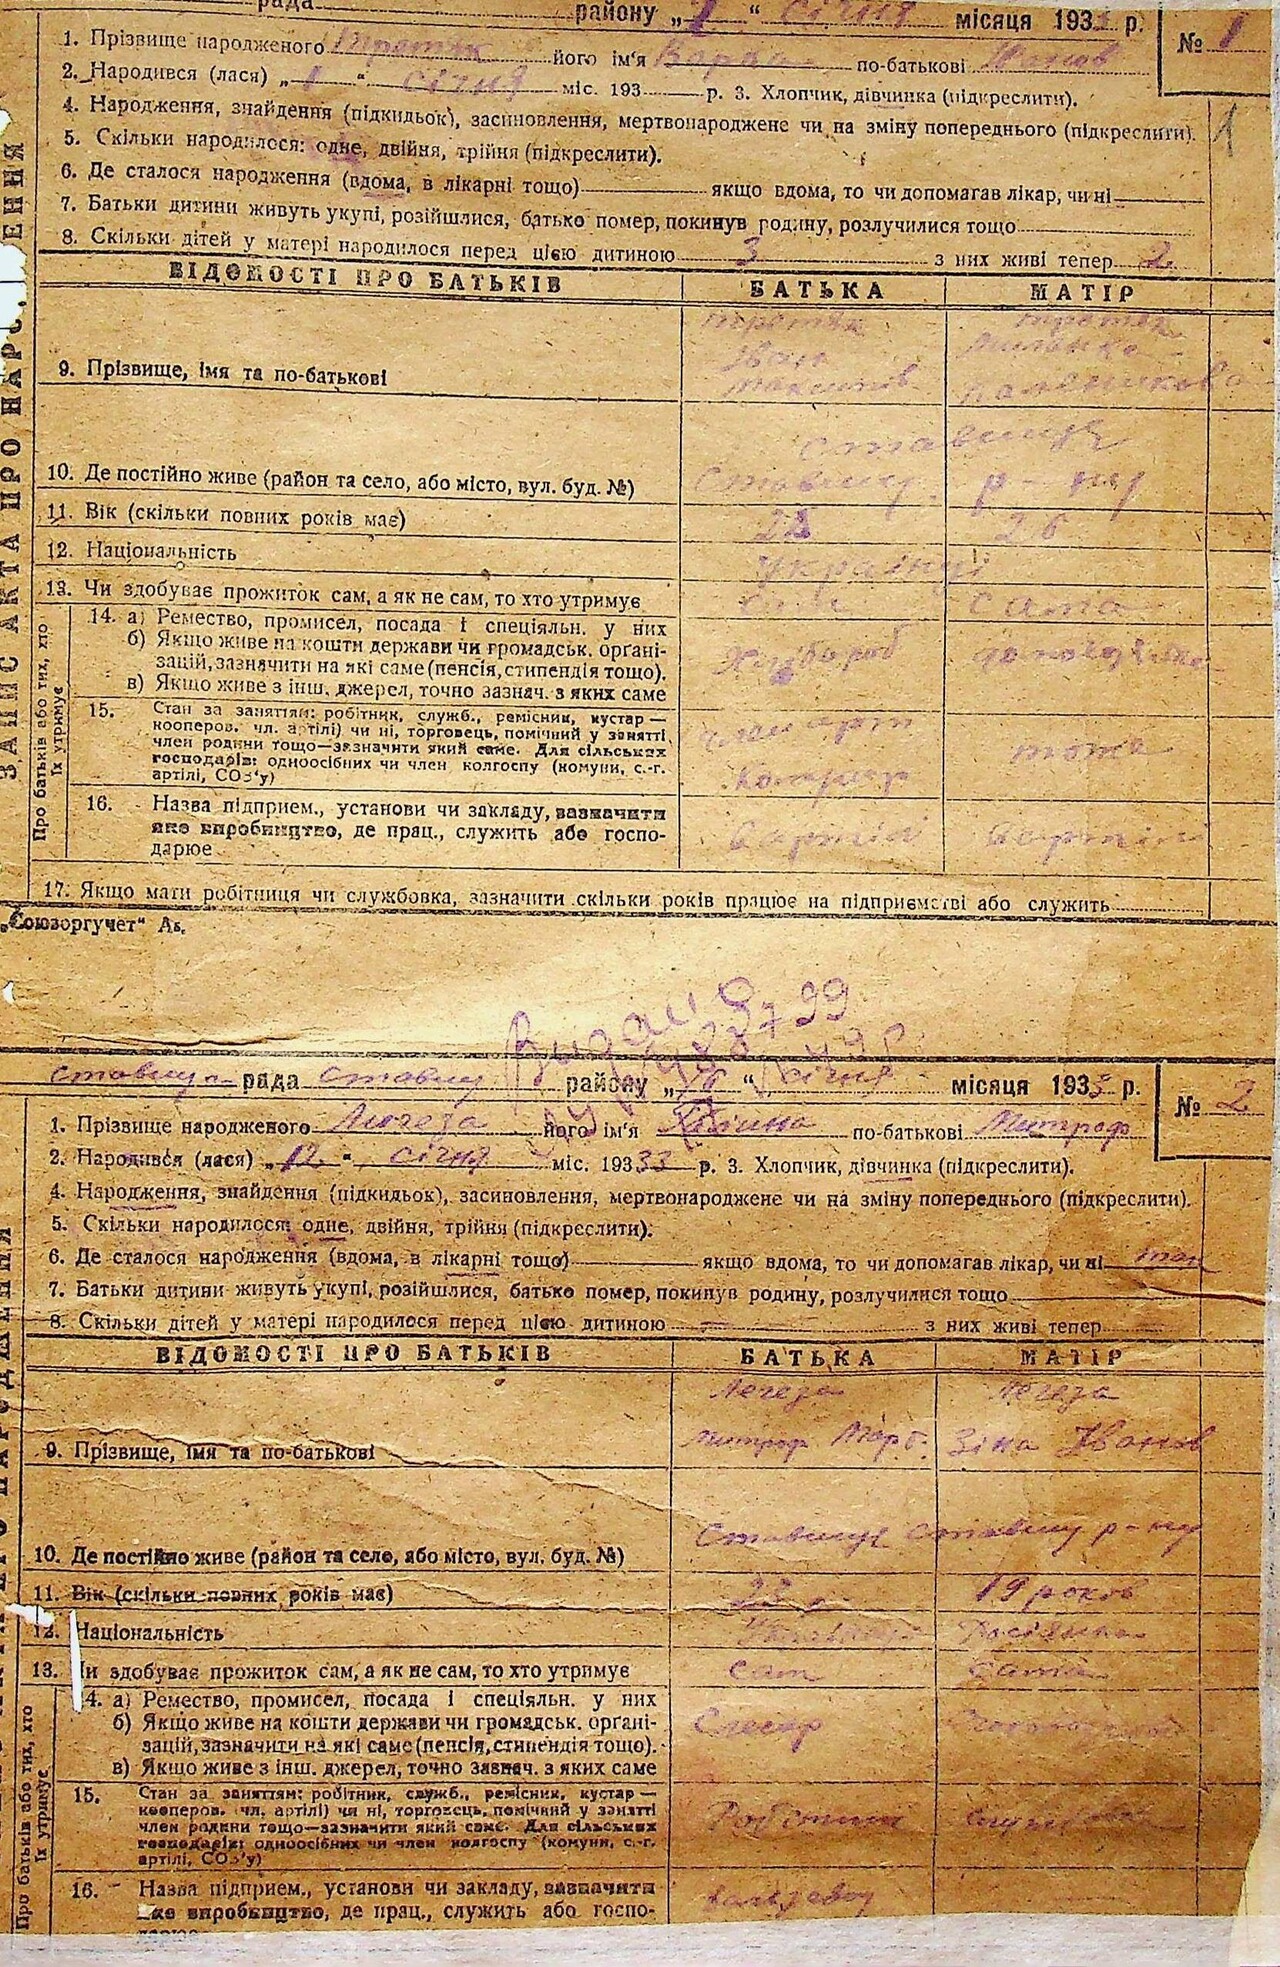 рада району „ 1 “ січня місяця 193 р. № 1
1. Прізвище народженого Третяк його ім'я Варва по-батькові Іванов
2. Народився (лася) „ 1 “ січня міс. 193 р. 3. Хлопчик, дівчинка (підкреслити).
4. Народження, знайдення (підкидьок), засиновлення, мертвонароджене чи на зміну попереднього (підкреслити).
1
5. Скільки народилося: одне, двійня, трійня (підкреслити).
6. Де сталося народження (вдома, в лікарні тощо) якщо вдома, то чи допомагав лікар, чи ні
7. Батьки дитини живуть укупі, розійшлися, батько помер, покинув родину, розлучилися тощо
8. Скільки дітей у матері народилося перед цією дитиною 3 з них живі тепер 2
ВІДОМОСТІ ПРО БАТЬКІВ БАТЬКА МАТІР
Третяк Третяк
Іван
9. Прізвище, імя та по-батькові
Ставище
10. Де постійно живе (район та село, або місто, вул. буд. №) Ставищ. р-ну
11. Вік (скільки повних років має) 26
12. Національність Українці
13. Чи здобуває прожиток сам, а як не сам, то хто утримує сам сама
14. а) Ремество, промисел, посада і спеціяльн. у них
б) Якщо живе на кошти держави чи громадськ. органі-
зацій, зазначити на які саме (пенсія, стипендія тощо). Хлібороб
в) Якщо живе з інш. джерел, точно зазнач. з яких саме
15. Стан за заняттям: робітник, служб., ремісник, кустар —
кооперов. чл. артілі) чи ні, торговець, помічний у занятті, член арт
член родини тощо—зазначити який саме. Для сільських тоже
господарів: одноосібних чи член колгоспу (комуни, с.-г.
артілі, СОЗ'у)
16. Назва підприєм., установи чи закладу, зазначити
яке виробництво, де прац., служить або госпо- в артіл в артіл
дарює
17. Якщо мати робітниця чи службовка, зазначити скільки років працює на підприємстві або служить
„Союзоргучет“ Аб.
Про батьків або тих, хто
їх утримує
ЗАПИС АКТА ПРО НАРОДЖЕННЯ
Видано
Ставищ рада Ставищ району „ “ січня місяця 1933 р. № 2
1. Прізвище народженого Легеза його ім'я Галина по-батькові Митроф
2. Народився (лася) „ 12 “ січня міс. 1933 р. 3. Хлопчик, дівчинка (підкреслити).
4. Народження, знайдення (підкидьок), засиновлення, мертвонароджене чи на зміну попереднього (підкреслити).
5. Скільки народилося: одне, двійня, трійня (підкреслити).
6. Де сталося народження (вдома, в лікарні тощо) якщо вдома, то чи допомагав лікар, чи ні так
7. Батьки дитини живуть укупі, розійшлися, батько помер, покинув родину, розлучилися тощо
8. Скільки дітей у матері народилося перед цією дитиною — з них живі тепер —
ВІДОМОСТІ ПРО БАТЬКІВ БАТЬКА МАТІР
Легеза Легеза
9. Прізвище, імя та по-батькові Митроф Марк. Зіна Іванов
Ставище Ставищ р-ну
10. Де постійно живе (район та село, або місто, вул. буд. №)
11. Вік (скільки повних років має) 23 р. 19 років
12. Національність Українець Росіянка
13. Чи здобуває прожиток сам, а як не сам, то хто утримує сам сама
14. а) Ремество, промисел, посада і спеціяльн. у них
б) Якщо живе на кошти держави чи громадськ. органі- Слесар
зацій, зазначити на які саме (пенсія, стипендія тощо).
в) Якщо живе з інш. джерел, точно зазнач. з яких саме
15. Стан за заняттям: робітник, служб., ремісник, кустар —
кооперов. чл. артілі) чи ні, торговець, помічний у занятті Робітник службовка
член родини тощо—зазначити який саме. Для сільських
господарів: одноосібних чи член колгоспу (комуни, с.-г.
артілі, СОЗ'у)
16. Назва підприєм., установи чи закладу, зазначити
яке виробництво, де прац., служить або госпо-
дарює
Про батьків або тих, хто
їх утримує